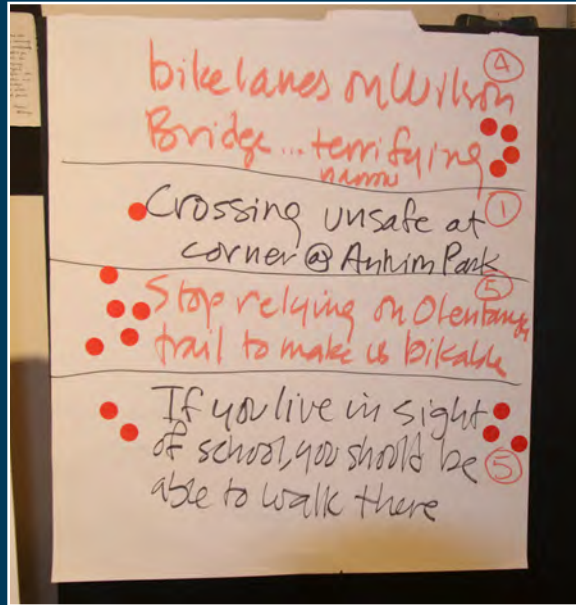 bike lanes on Wilson
④
Bridge... terrifying
narrow
Crossing unsafe at
①
corner @ Park
⑤
Stop relying on Olentangy
trail to make us bikable
If you live in sight
of school, you should be
⑤
able to walk there